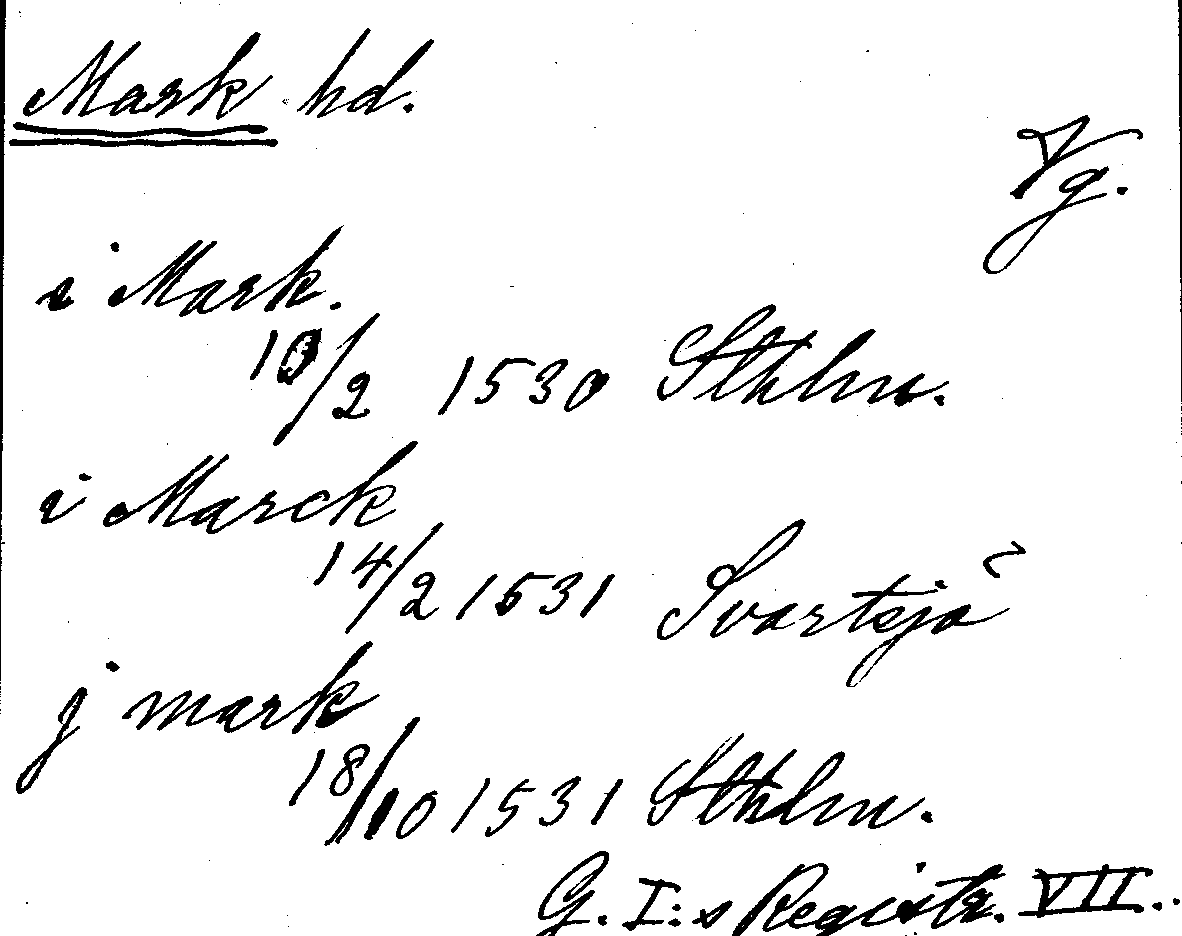 Mark hd.
Vg.
i Mark.
10/2 1530 Sthlm.
i Marck
14/2 1531 Svartsjö
j mark
18/10 1531 Sthlm.
G. I:s Registr. VII..